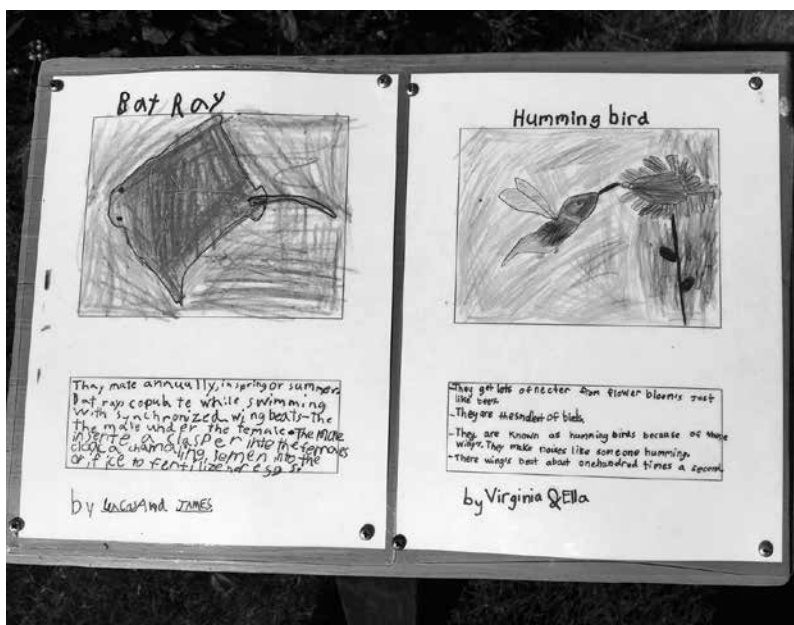 Bat Ray
They mate annually, in spring or summer.
Bat rays copulate while swimming
with synchronized wing beats-The
the male under the female. The male
inserte a clasper into the females
cloaca chanoling semen into the
orifice to fertilize her eggs.
by Lucas And JAMES
Humming bird
-They get lots of necter from flower blooms Just
like bees.
-They are the smallest of birds.
-They are known as humming birds because of those
wings. They make noises like someone humming.
-There wing's beat about onehundred times a second
by Virginia & Ella